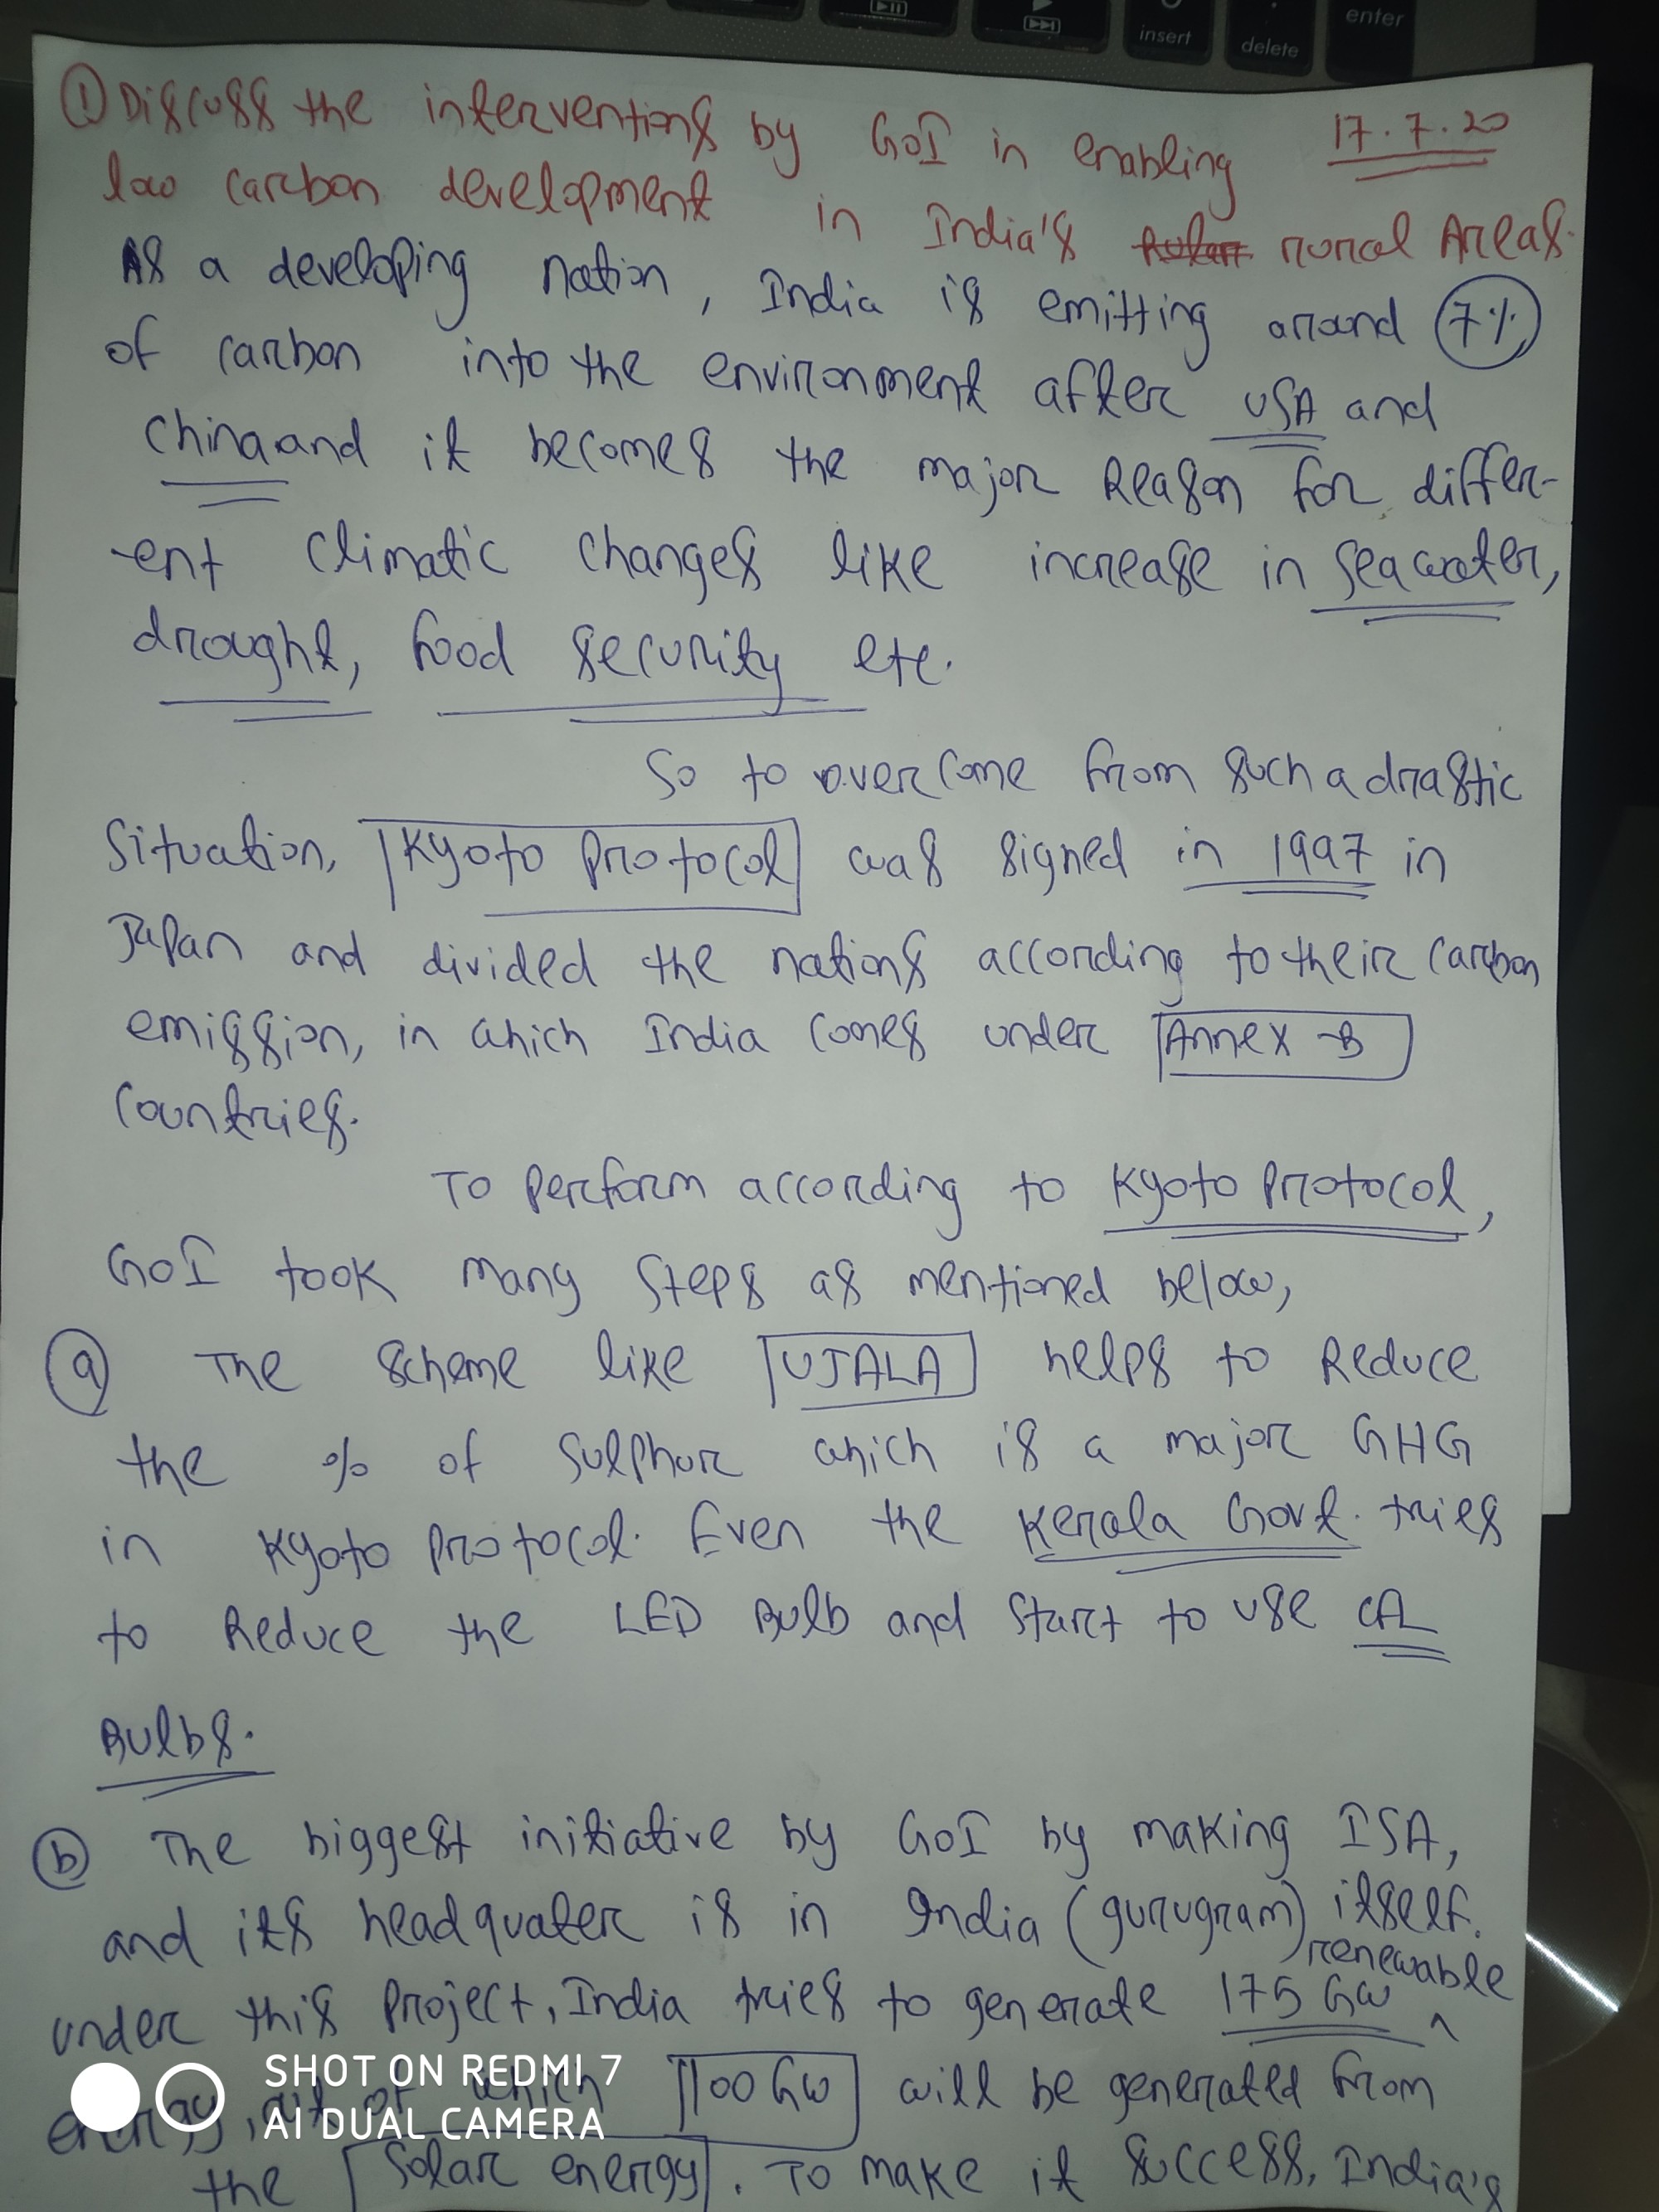 insert
delete
enter
① Discuss the interventions by GoI in enabling 17.7.20
low carbon development in India's rural Areas.
As a developing nation, India is emitting around 7%
of carbon into the environment after USA and
China and it becomes the major Reason for differ-
-ent climatic changes like increase in sea water,
drought, food security etc.
So to overcome from such a drastic
situation, Kyoto Protocol was signed in 1997 in
Japan and divided the nations according to their carbon
emission, in which India comes under Annex-B
countries.
To perform according to Kyoto Protocol,
GoI took many steps as mentioned below,
ⓐ The scheme like UJALA helps to Reduce
the % of sulphur which is a major GHG
in Kyoto Protocol. Even the Kerala Govt. tries
to Reduce the LED Bulb and start to use CFL
Bulbs.
ⓑ The biggest initiative by GoI by making ISA,
and its headquater is in India (gurugram) itself.
under this Project, India tries to generate 175 GW ^ renewable
energy, out of which 100 GW will be generated from
the Solar energy. To make it success, India's
SHOT ON REDMI 7
AI DUAL CAMERA